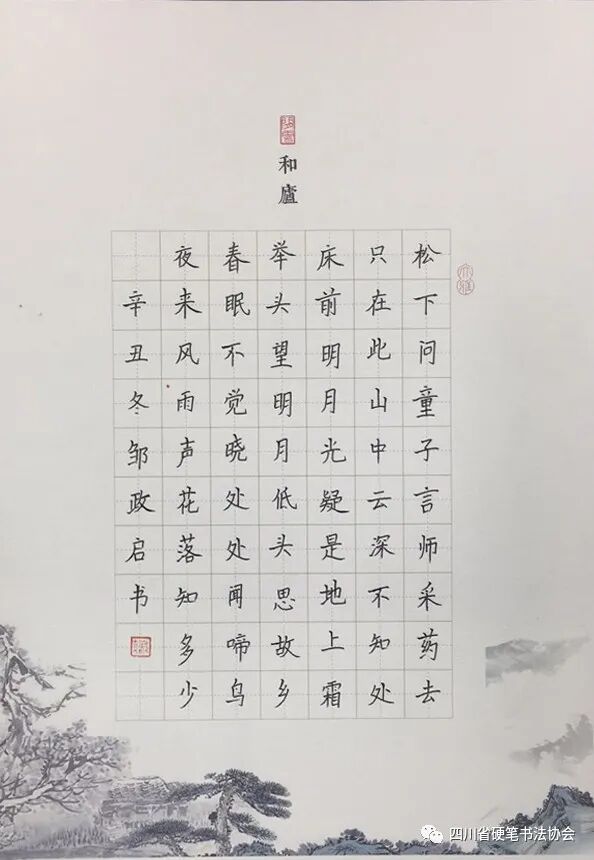 和廬
松下问童子言师采药去
只在此山中云深不知处
床前明月光疑是地上霜
举头望明月低头思故乡
春眠不觉晓处处闻啼鸟
夜来风雨声花落知多少
辛丑冬邹政启书
四川省硬笔书法协会